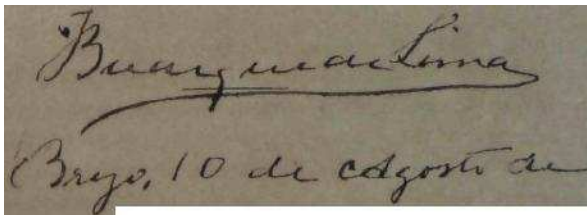 Buarque de Lima
Brejo, 10 de Agosto de